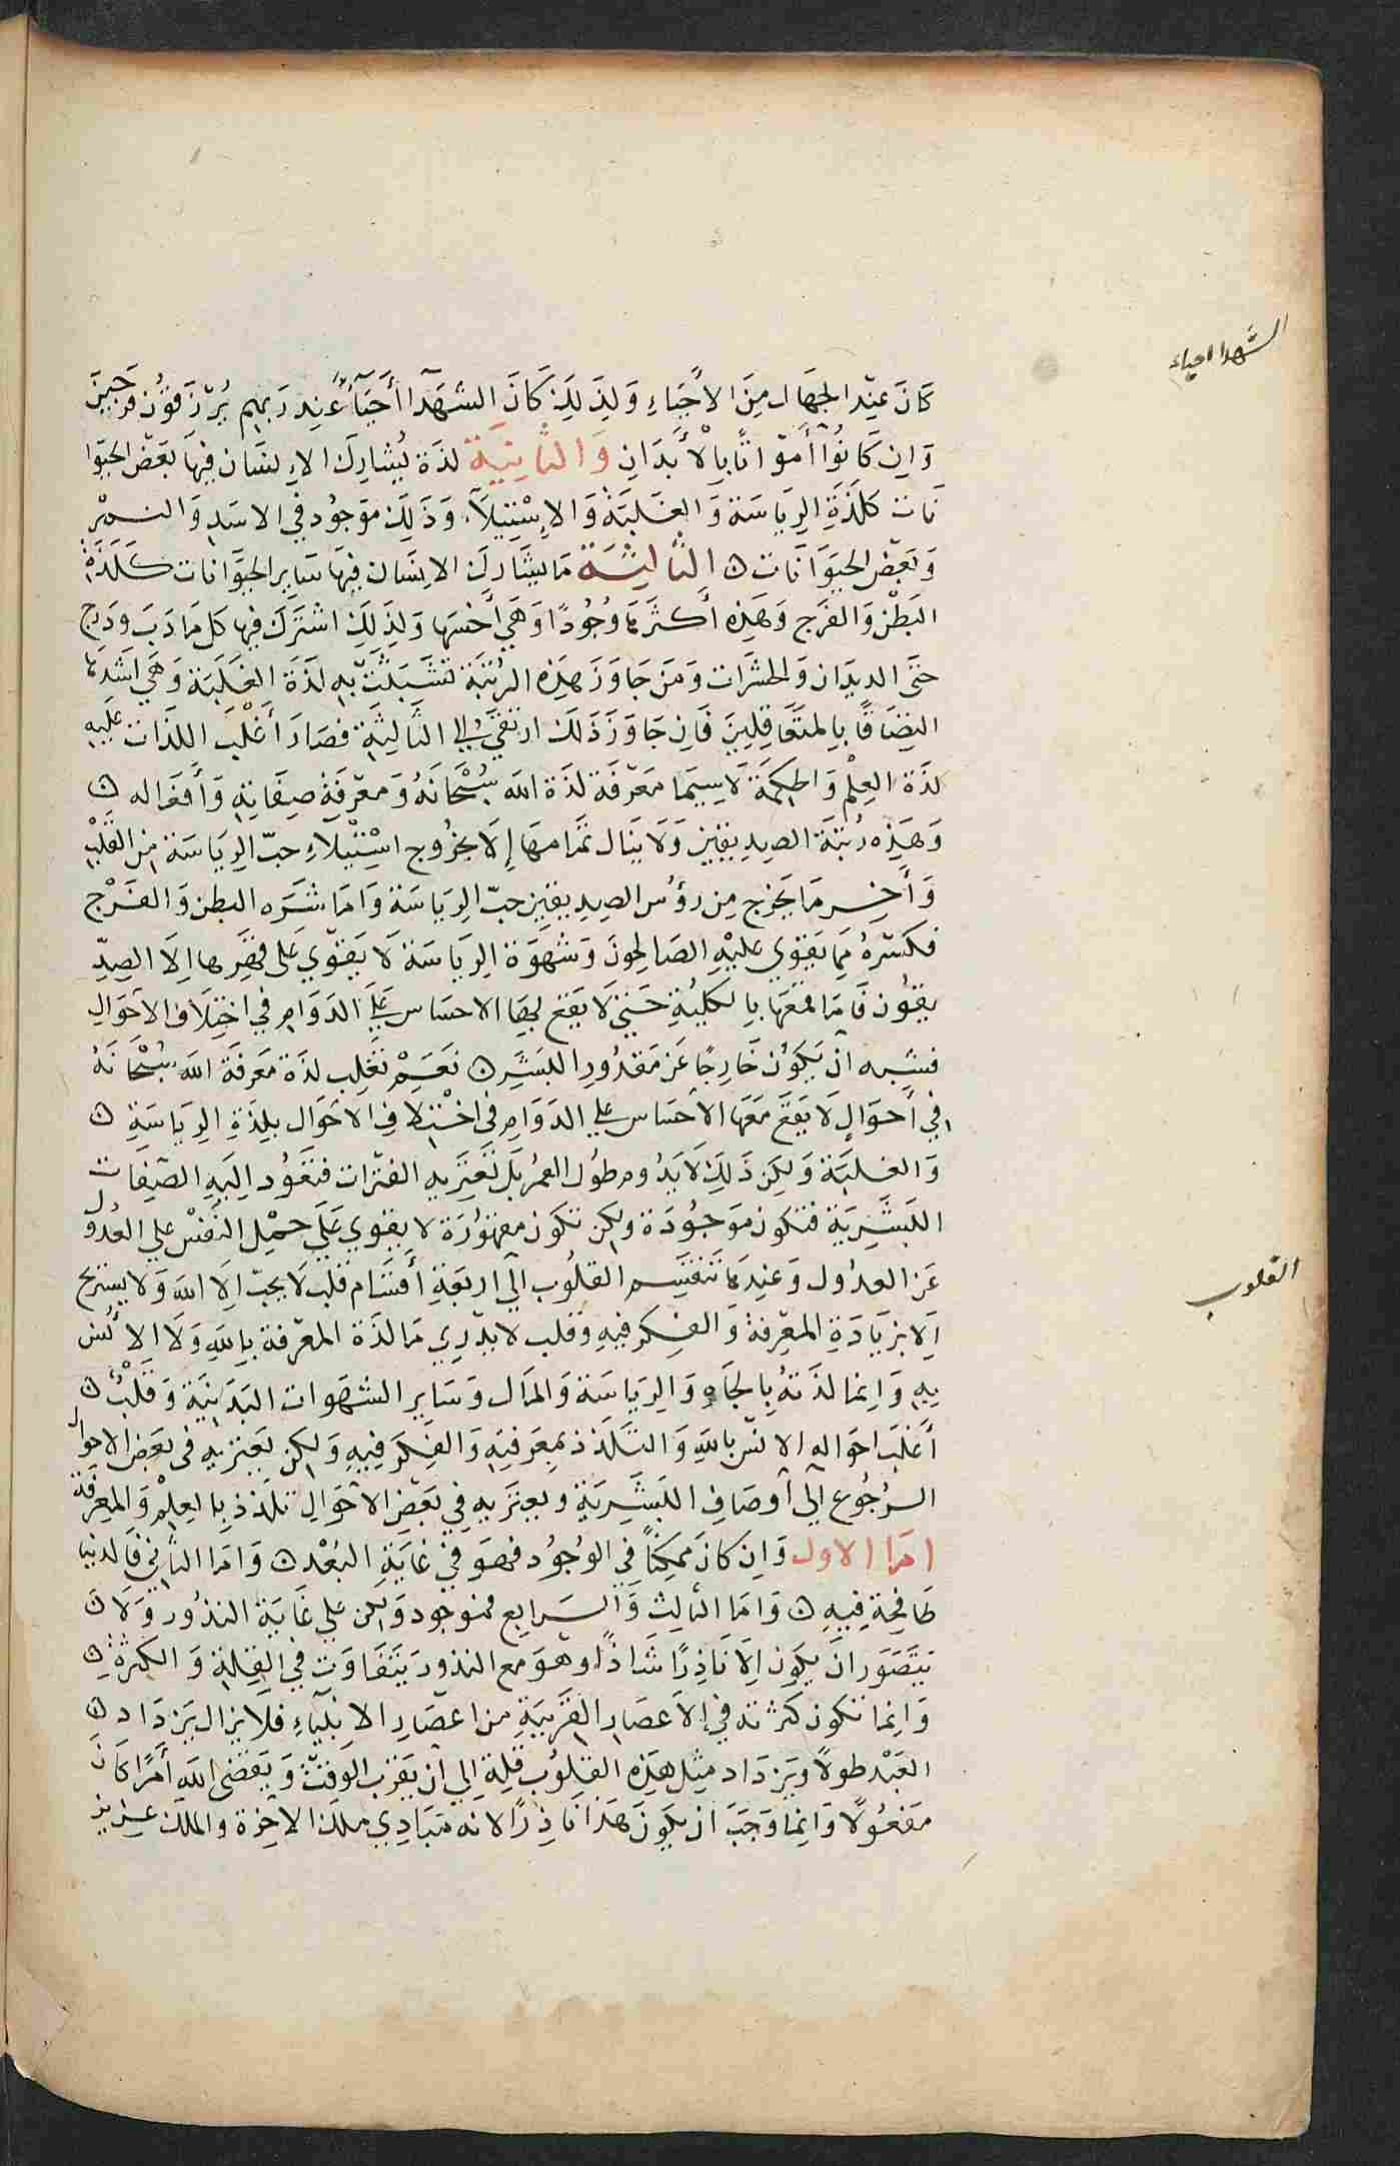 الشهدا احياء
كَانَ عِنْدَ الجهَال مِنَ الاَحْيَاءِ وَلِذَلِكَ كَانَ الشهَدَآ أَحْيَآءً عِنِد رَبهِم يُرْزَقوُن فَرَحِينَ
وَان كَانُوُآ أَموْاتًا بِالْأَبدَانِ وَالثانِيَة لذَة يُشارِكَ الاِنسَان فِيهَا بَعْض الحيَوَا
نَات كَلذَةِ الرِيَاسَة وَالغَلَبَة وَالاِسْتِيلَآءِ وَذَلِكَ موْجُود فِي الاسَدِ وَالنمْرِ
وَبَعْض الحيَوَانَات ۞ الثَالِثَة مَا يشَارِكَ الاِنسَان فِيهَا سَاير الحيَوَانات كَلَذَة
البَطْن وَالفَرج وَهَذِه أَكثَرهَا وُجُودًا وَهَي أَخسَهَا وَلِذَلِكَ اشْتَرَكَ فِيها كل مَا دَبَ وَدَرج
حتَى الديدَان وَالحشَرات وَمَنْ جَاوَزَ هَذِه الرُتبَة تَشَبَثَتْ بِه لَذَة الغَلَبَة وَهَي اشَدهَا
التِصَاقًا بِالمتَغَافِلِينَ فَاِن جَاوَزَ ذَلكَ ارتَقَي إلي الثَالِثَةِ فصَارَ أَغْلَبَ اللذَات عَلَيهِ
لذَة العِلْم وَالحِكمَة لَا سِيَمَا مَعْرِفَة لذَة الله سُبْحَانَهُ وَمَعْرِفَةِ صِفَاتِهِ وَأَفعَاله ۞
وَهَذِه رُتبَة الصِدِيقِينِ وَلَا يَنَال تمَامهَا إِلَا بخرُوج اسْتِيْلَاءِ حبّ الرِيَاسَة مِن القَلْبِ
وَأَخِر مَا يَخرُج مِن رؤُس الصِدِيقِينِ حبّ الرِيَاسَة وَامَا شرَه البطن وَالفَرْج
فكَسْرهُ مِمَا يَقوَي عليْهِ الصَالِحُونَ وَشهوَة الرِيَاسَة لَا يَقوْي عَلى قهْرِها اِلَا الصِدِّ
يقوُن فَامَا قمْعهَا بِالكليُةِ حَتيَ لَا يَقع بِهَا الاحسَاس عَلَي الدَوَامِ فِي اختِلَاف الاَحْوَالِ
فشِبْه اَنْ يَكُوُن خَارِجًا عَن مَقدُورِ البَشَر ۞ نَعَمْ تَغلِب لذَة مَعْرِفَة الله سُبْحَانَهُ
فِي أَحوَالٍ لَا يَقَع مَعَها الاَحْسَاس علي الدَوَامِ في اخْتِلَافِ الاَحْوَال بلِذَةِ الرِيَاسَةِ ۞
وَالغلبَة وَلكِن ذَلِكَ لَا يَدُوم طوُل العمُر بَل تَعْتَرِيهِ الفتْرات فتَعُود اِلَيهِ الصِفَات
البَشَرِيَة فتكون مَوْجُودَة ولكِن تكَون مَقهُوُرَة لَا يقوَي عَلَي حمْلِ النَفْس علي العُدوُل
عَنِ العدُول وَعِندَهَا تَنقَسِم القلوُب الَي اربَعَةِ أَقسَام قَلب لَا يحبّ اِلَا اللهَ وَلا يستريح
اِلَا بزيَادَةِ المعْرِفَة وَالفِكر فِيهِ وَقلب لا يدْرِي مَا لذَة المعْرِفة بِاللهِ وَلَا الاُنس
بِهِ وَاِنما لذَتهُ بِالجَاهِ وَالرِيَاسَة وَالمَال وَسَايِر الشهوَات البَدَنِيَة وَقَلْبٌ ۞
أَغلَب احوَاله الانس بالله وَالتَلَذذ بمعْرِفتِه وَالفِكر فِيهِ وَلكِن يَعتَريهِ في بَعض الاحوال
الرُجُوُع اَلي أَوصَافِ البَشَرِيَةِ ويعتَرَيهِ فِي بَعْض الاَحْوَال تلَذذ بِالعِلْم وَالمعْرِفَة
امَا الاول وَاِن كَانَ ممْكِنًا فِي الوُجُود فهوَ فِي غايَةِ البُعْد ۞ وَامَا الثانِي فَالدنيا
طَافِحَة فِيهِ ۞ وَامَا الثالِث وَالرَابِع فموْجود وَلكِن علي غَايَة النذُور وَلَا ۞
يَتَصَوَر اَنْ يكَون اِلَا نَاذِرًا شَاذًا وهوَ مع النذورَ يَتَفَاوَت فِي القِلةِ وَالكثرَة ۞
وَاِنما تكون كثرته فِي الاَعصَارِ القَرِيَبةِ من اعصَارِ الانبيَآءِ فلَا يزال يزدَاد ۞
العَبْد طولًا ويَزدَاد مِثل هَذِه القلوُب قِلةِ اِلي اَن يَقرب الوَقتْ وَيَقضَي اللهِ أَمْرًا كَانَ
مَفعُولًا وَاِنما وَجَبَ ان يكَونَ هَذَا نَاذِرًا لانه مَبَادِي ملك الاَخِرَة وَالملك عَزيز
القلوب